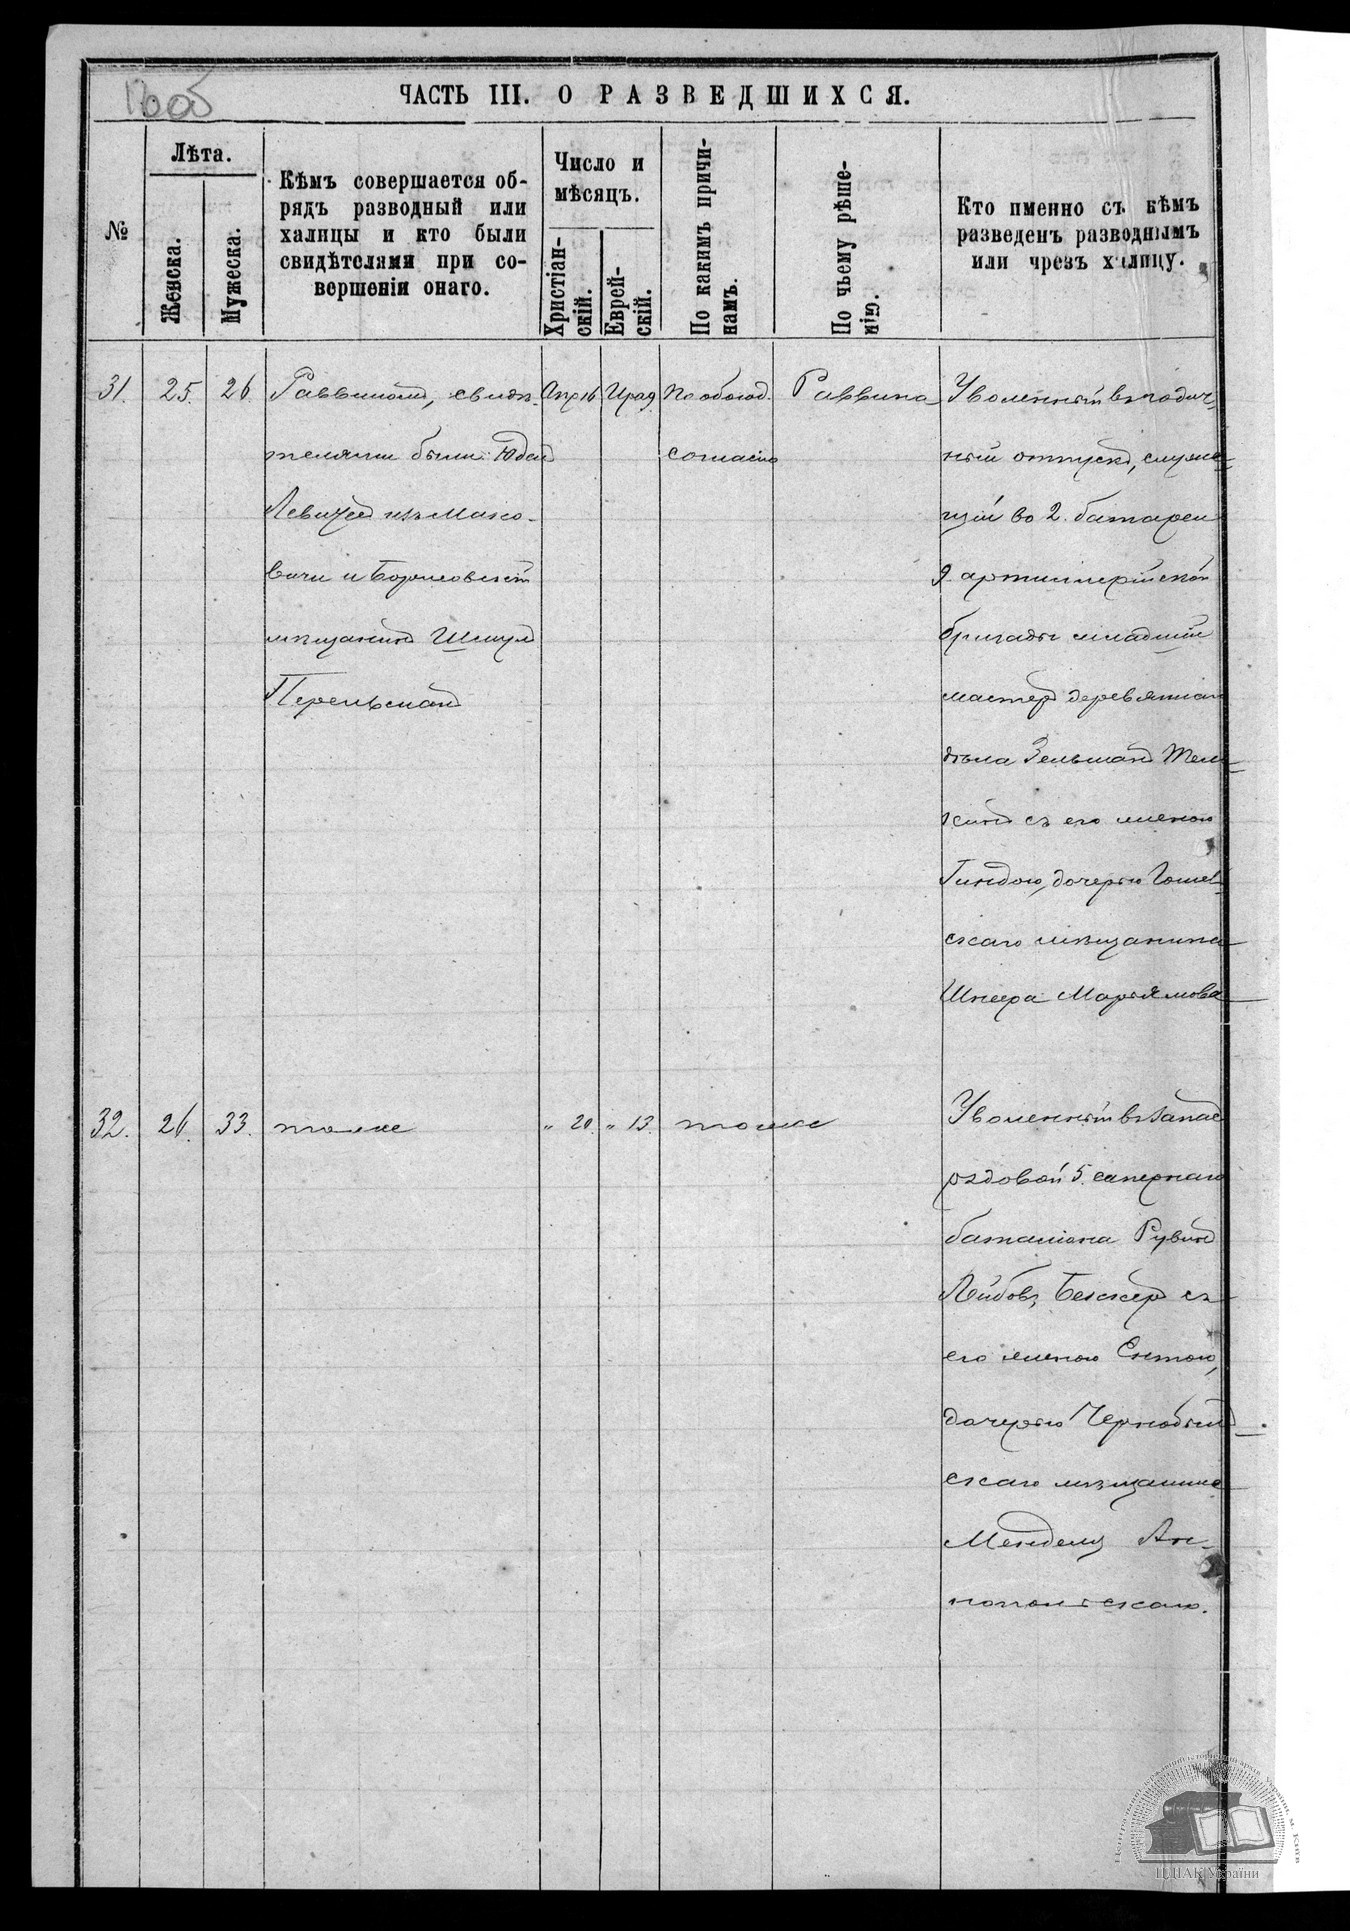 170об
ЧАСТЬ III. О РАЗВЕДШИХСЯ.
№
Лѣта.
Женска.
Мужеска.
Кѣмъ совершается об-
рядъ разводный или
халицы и кто были
свидѣтелями при со-
вершеніи онаго.
Число и
мѣсяцъ.
Христіан-
скій.
Еврей-
скій.
По какимъ причи-
намъ.
По чьему рѣше-
нію.
Кто именно съ кѣмъ
разведенъ разводнымъ
или чрезъ халицу.
31. 25. 26.
Раввиномъ, свидѣ-
телями были: Юдель
из Мако-
вичи и Борисовскій
мѣщанинъ Шмуль
Перельманъ
Апр 16
9
По обоюд.
согласію
Раввина
Уволенный въ годич-
ный отпускъ, служа-
щій во 2. батареи
9. артиллерійской
бригады младшій
мастеръ деревяннаго
дѣла Зельманъ
кинъ съ его женою
Гиндою, дочерью Гомель-
скаго мѣщанина
Шнеера Марьямова
32. 26. 33.
тоже
" 20. " 13.
тоже
Уволенный въ запасъ
рядовой 5. сапернаго
баталіона Рувинъ
Лейбовъ Беккеръ съ
его женою Ентою,
дочерью Чернобыль-
скаго мѣщанина
Менделя Ан-
нопольскаго.
ЦДІАК України